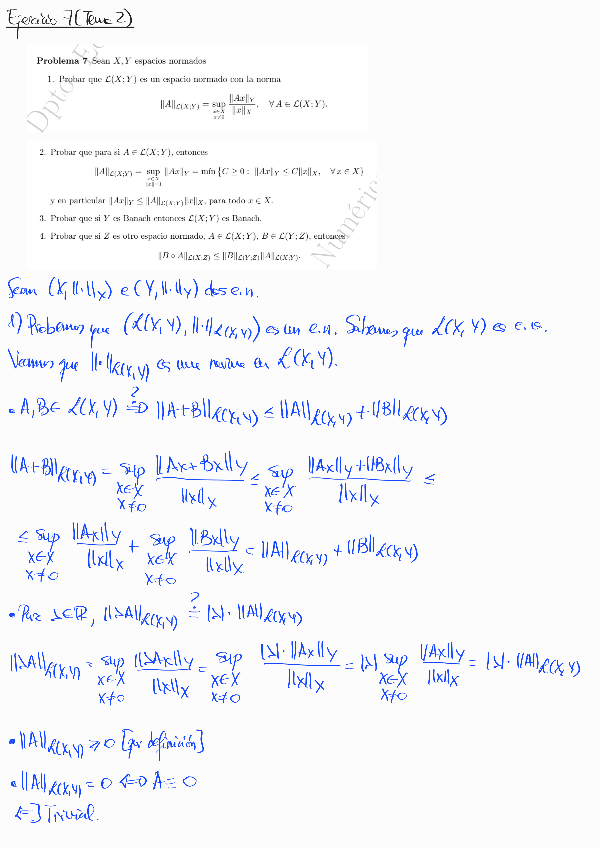 Ejercicio 7 (Tema 2)
Problema 7 Sean X, Y espacios normados
1. Probar que L(X; Y) es un espacio normado con la norma
‖A‖_{L(X;Y)} = sup_{x∈X, x≠0} ‖Ax‖_Y / ‖x‖_X, ∀ A ∈ L(X; Y).
2. Probar que para si A ∈ L(X; Y), entonces
‖A‖_{L(X;Y)} = sup_{x∈X, ‖x‖=1} ‖Ax‖_Y = mín {C ≥ 0 : ‖Ax‖_Y ≤ C‖x‖_X, ∀ x ∈ X}
y en particular ‖Ax‖_Y ≤ ‖A‖_{L(X;Y)}‖x‖_X, para todo x ∈ X.
3. Probar que si Y es Banach entonces L(X; Y) es Banach.
4. Probar que si Z es otro espacio normado, A ∈ L(X; Y), B ∈ L(Y; Z), entonces
‖B ∘ A‖_{L(X;Z)} ≤ ‖B‖_{L(Y;Z)}‖A‖_{L(X;Y)}.
Sean (X, ‖·‖_X) e (Y, ‖·‖_Y) dos e.n.
1) Probemos que (L(X, Y), ‖·‖_{L(X,Y)}) es un e.n. Sabemos que L(X, Y) es e.v.
Veamos que ‖·‖_{L(X,Y)} es una norma en L(X, Y).
• A, B ∈ L(X, Y) ?⇒ ‖A+B‖_{L(X,Y)} ≤ ‖A‖_{L(X,Y)} + ‖B‖_{L(X,Y)}
‖A+B‖_{L(X,Y)} = sup_{x∈X, x≠0} ‖Ax+Bx‖_Y / ‖x‖_X ≤ sup_{x∈X, x≠0} (‖Ax‖_Y + ‖Bx‖_Y) / ‖x‖_X ≤
≤ sup_{x∈X, x≠0} ‖Ax‖_Y / ‖x‖_X + sup_{x∈X, x≠0} ‖Bx‖_Y / ‖x‖_X = ‖A‖_{L(X,Y)} + ‖B‖_{L(X,Y)}
• Par λ∈ℝ, ‖λA‖_{L(X,Y)} ?= |λ| · ‖A‖_{L(X,Y)}
‖λA‖_{L(X,Y)} = sup_{x∈X, x≠0} ‖λAx‖_Y / ‖x‖_X = sup_{x∈X, x≠0} |λ| · ‖Ax‖_Y / ‖x‖_X = |λ| sup_{x∈X, x≠0} ‖Ax‖_Y / ‖x‖_X = |λ| · ‖A‖_{L(X,Y)}
• ‖A‖_{L(X,Y)} ≥ 0 [por definición]
• ‖A‖_{L(X,Y)} = 0 ⇔ A ≡ 0
⇐] Trivial.